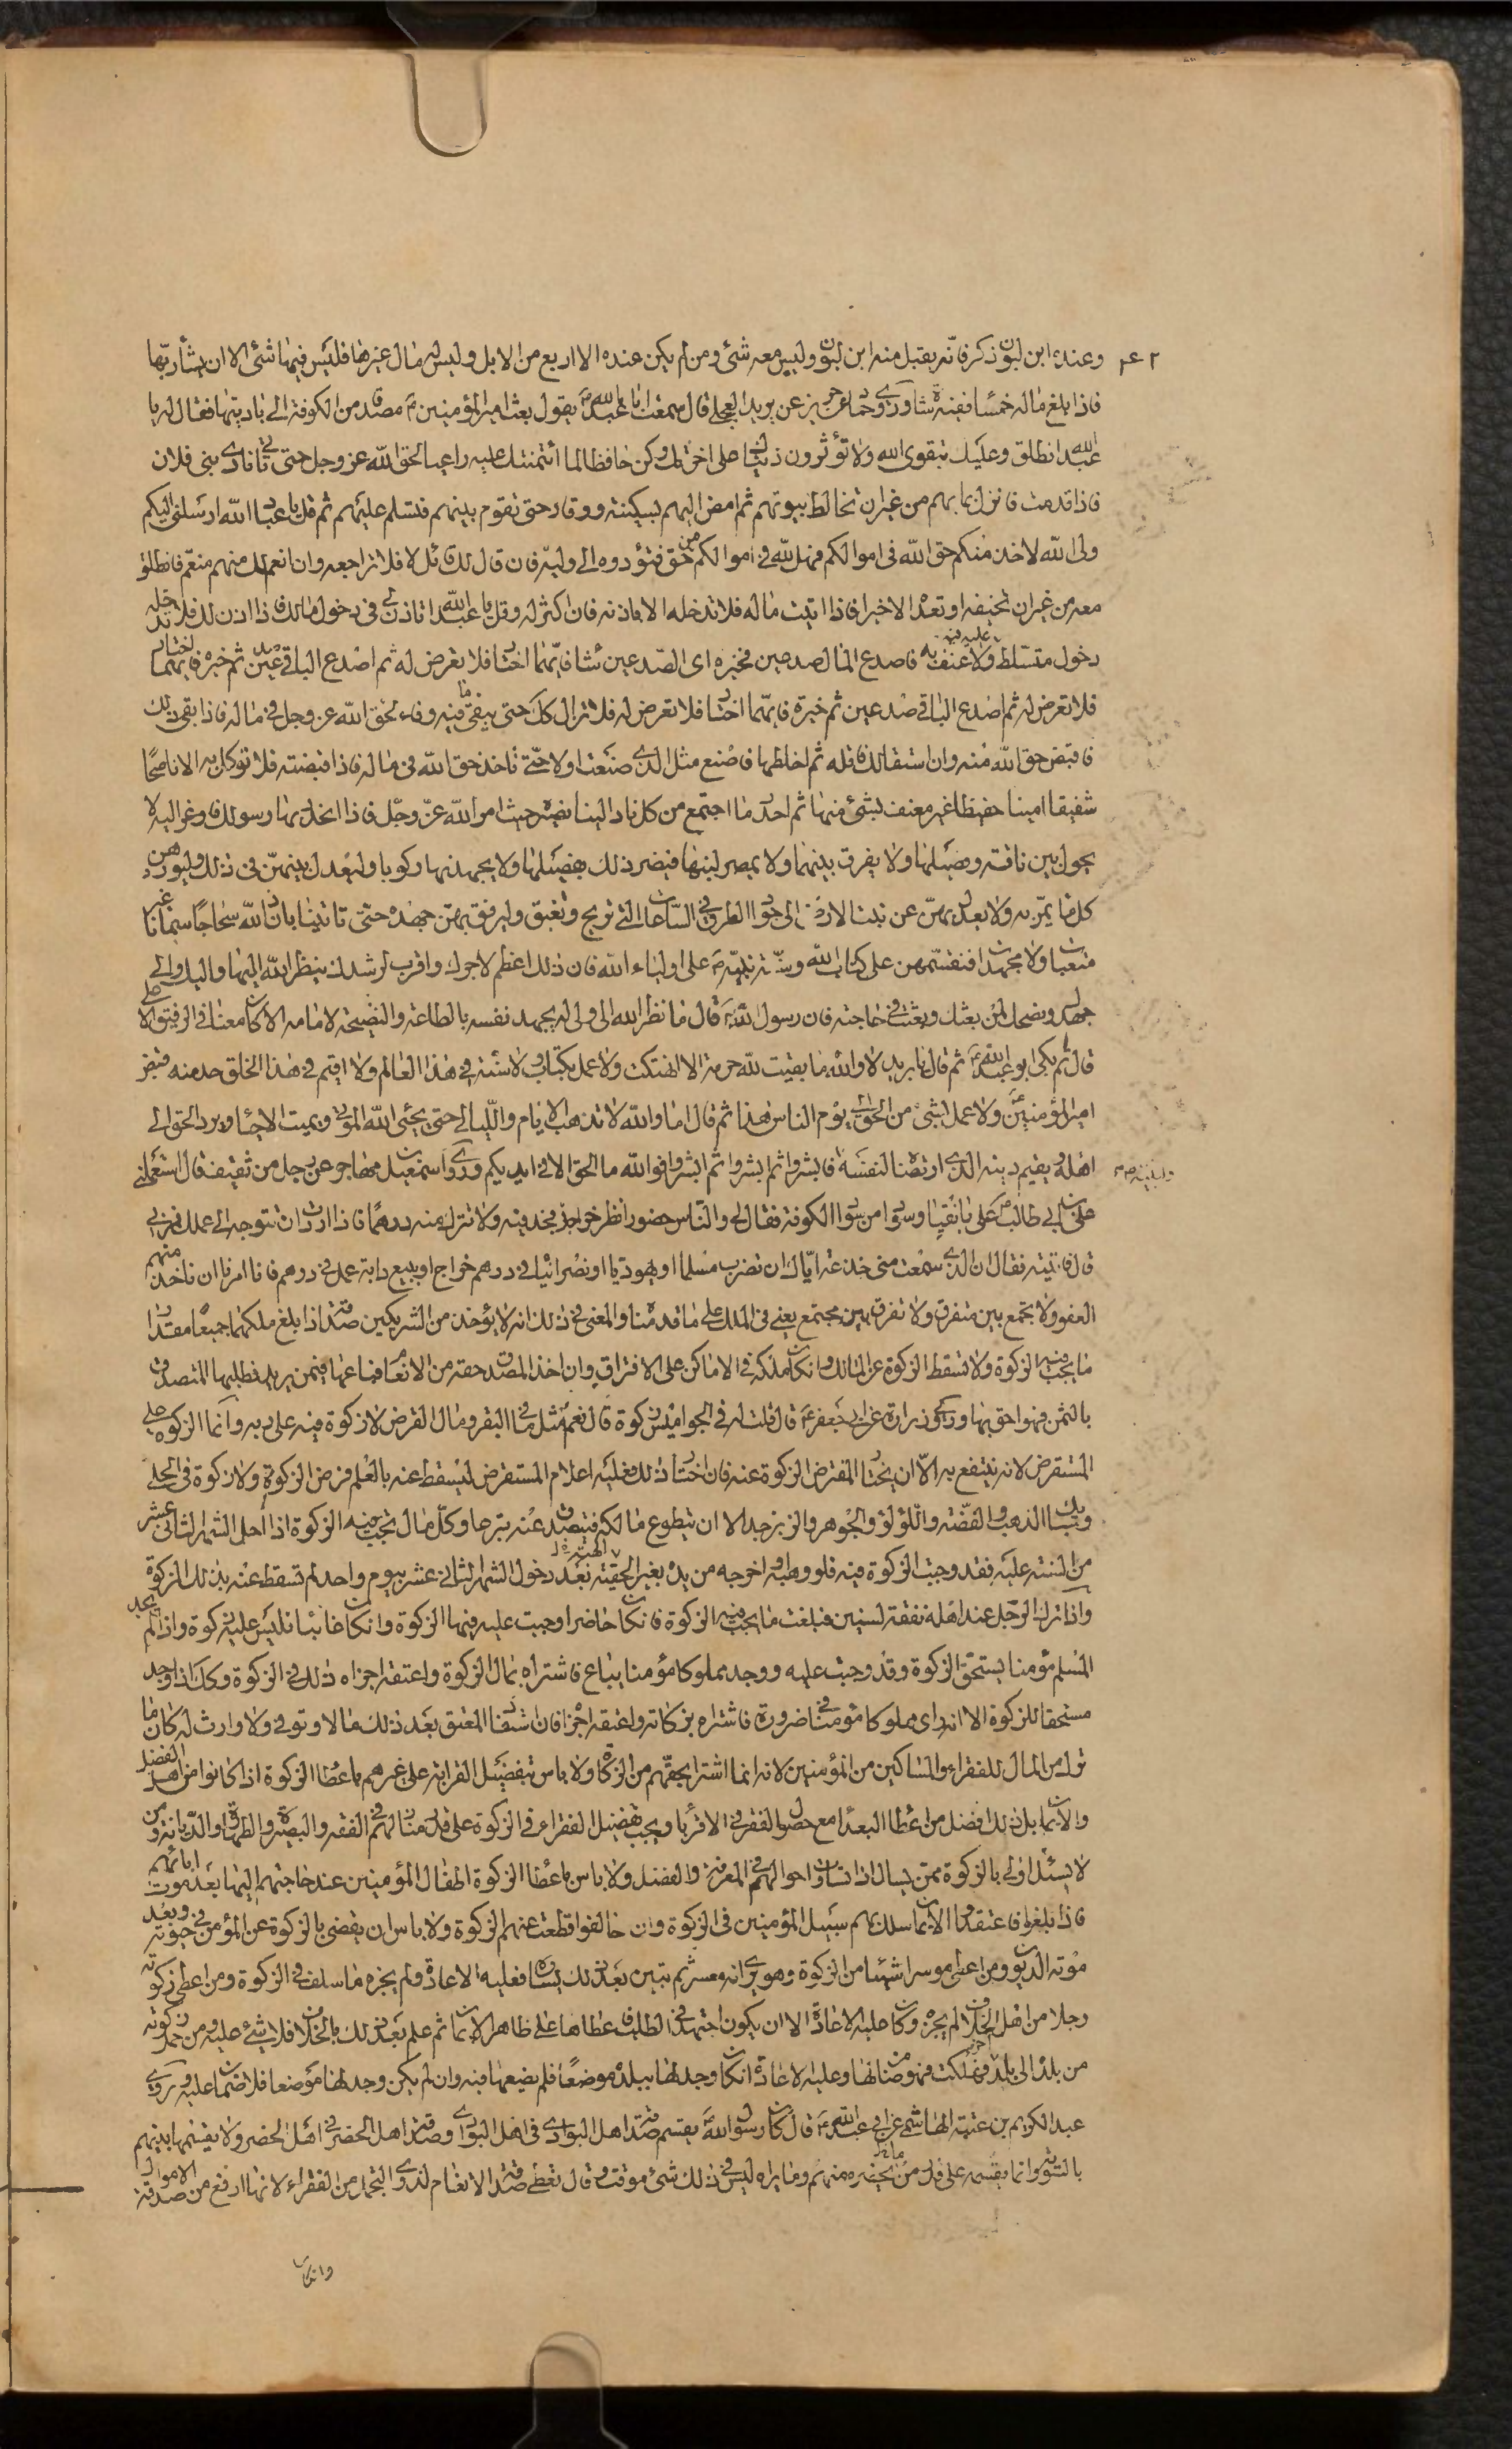 وعنده ابن لبون ذكر فانّه يقبل منه ابن لبون وليس معه شئ ومن لم يكن عنده الا اربع من الابل وليس له مال غيرها فليس فيها شئ الا ان يشاء ربّها
فاذا بلغ ماله خمسا ففيه شاة وروى حماد عن حريز عن بريد العجلى قال سمعت ابا عبد الله ع يقول بعث امير المؤمنين ع مصدقا من الكوفة الى باديتها فقال له يا
عبد الله انطلق وعليك بتقوى الله ولا تؤثرون دنياك على اخرتك وكن حافظا لما ائتمنتك عليه راعيا لحق الله عز وجل حتى تاتى نادى بنى فلان
فاذا قدمت فانزل بمائهم من غير ان تخالط بيوتهم ثم امض اليهم بسكينة ووقار حتى تقوم بينهم فتسلم عليهم ثم قل يا عباد الله ارسلنى اليكم
ولى الله لاخذ منكم حق الله فى اموالكم فهل لله فى اموالكم من حق فتؤدوه الى وليه فان قال لك قائل لا فلا تراجعه وان انعم لك منهم منعم فانطلق
معه من غير ان تخيفه او تعده الا خيرا فاذا اتيت ماله فلا تدخله الا باذنه فان اكثره له وقل يا عبد الله اتاذن لى فى دخول مالك فاذا اذن لك فلا تدخله
دخول متسلط عليه فيه ولا عنف به فاصدع المال صدعين فخيره اى الصدعين شاء فايّهما اختار فلا تعرض له ثم اصدع الباقى صدعين ثم خيره فايهما اختار
فلا تعرض له ثم اصدع الباقى صدعين ثم خيره فايّهما اختار فلا تعرض له فلا تزال كك حتى يبقى ما فيه وفاء بحق الله عز وجل فى ماله فاذا بقى ذلك
فاقبض حق الله منه وان استقالك فاقله ثم اخلطها فاصنع مثل الذى صنعت اولا حتّى تاخذ حق الله فى ماله فاذا قبضته فلا توكل به الا ناصحا
شفيقا امينا حفيظا غير معنف لشئ منها ثم احدر ما اجتمع من كل ناد الينا نصيره حيث امر الله عزّ وجلّ فاذا انحدر بها رسولك فاوعز اليه لا
يحول بين ناقة وفصيلها ولا يفرق بينهما ولا يمصر لبنها فيضر ذلك بفصيلها ولا يجهدنها ركوبا وليعدل بينهنّ فى ذلك وليوردهن
كل ما يمّر به ولا يعدل بهنّ عن نبت الارض الى جواد الطرق فى الساعات التى تريح وتغبق وليرفق بهن جهده حتى تاتينا باذن الله سحاحا سمانا غير
متعبات ولا مجهدات فنقسمهن على كتاب الله وسنة نبيّه ص على اولياء الله فان ذلك اعظم لاجرك واقرب لرشدك ينظر الله اليها واليك والى
جهدك ونصحك لمن بعثك وبعثت فى حاجته فان رسول الله ص قال ما نظر الله الى ولى له يجهد نفسه بالطاعة والنصيحة لامامه الا كان معنا فى الرفيق الاعلى
قال ثم بكى ابو عبد الله ع ثم قال يا بريد لا والله ما بقيت لله حرمة الا انتهكت ولا عمل بكتاب ولا سنة فى هذا العالم ولا اقيم فى هذا الخلق حد منذ قبض
امير المؤمنين ع ولا عمل بشئ من الحق الى يوم الناس هذا ثم قال اما والله لا تذهب الايام والليالى حتى يحيى الله الموتى ويميت الاحياء ويرد الحق الى
اهله ويقيم دينه الذى ارتضاه لنفسه فابشروا ثم ابشروا ثم ابشروا فوالله ما الحق الا فى ايديكم وروى اسمعيل بن مهاجر عن رجل من ثقيف قال استعملنى
على بن ابى طالب ع على بانقيا وسواد من سواد الكوفة فقال لى والناس حضور انظر خراجك فجد فيه ولا تترك منه درهما فاذا اردت ان تتوجه الى عملك فمر بى
قال فاتيته فقال ان الذى سمعت منى خدعة ايّاك ان تضرب مسلما او يهوديا او نصرانيا فى درهم خراج او تبيع دابة عمل فى درهم فانا امرنا ان ناخذ منهم
العفو ولا يجمع بين متفرق ولا تفرق بين مجتمع يعنى فى الملك على ما قدمنا والمعنى فى ذلك انه لا يؤخذ من الشريكين صدقة اذا بلغ ملكهما جميعا مقدار
ما يجب فيه الزكوة ولا تسقط الزكوة عن المالك وان كان ملكه فى الاماكن على الافتراق وان اخذ المصدق حقه من الانعام فباعها فيمن يريد فطلبها المتصدق
بالثمن فهو احق بها وروى زرارة عن ابى جعفر ع قال قلت له فى الجواميس زكوة قال نعم مثل ما فى البقر ومال القرض لا زكوة فيه على ربه وانما الزكوة على
المستقرض لانه ينتفع به الّا ان يختار المقرض الزكوة عنه فان اختار ذلك فعليه اعلام المستقرض ليسقط عنه بالعلم فرض الزكوة ولا زكوة فى الحلى
وسبائك الذهب والفضّة واللؤلؤ والجوهر والزبرجد الا ان يتطوع مالكه فيتصدق عنه تبرعا وكلّ مال تجب فيه الزكوة اذا اهل الشهر الثانى عشر
من السنة عليه فقد وجبت الزكوة فيه فلو وهبه او اخرجه من يده بغير الهبة بعد دخول الشهر الثانى عشر بيوم واحد لم تسقط عنه بذلك الزكوة
واذا ترك الرّجل عند اهله نفقة لسنين فبلغت ما يجب فيه الزكوة فان كان حاضرا وجبت عليه فيها الزكوة وان كان غائبا فليس عليه زكوة واذا لم يجد
المسلم مؤمنا يستحق الزكوة وقد وجبت عليه ووجد مملوكا مؤمنا يباع فاشتراه بمال الزكوة واعتقه اجزاه ذلك فى الزكوة وكك اذا وجد
مستحقا للزكوة الا انه راى مملوكا مؤمنا فى ضرورة فاشتراه بزكاته واعتقه اجزاه فان استفاد المعتق بعد ذلك مالا وتوفى ولا وارث له كان ما
ترك من المال للفقراء والمساكين من المؤمنين لانه انما اشترى بحقّهم من الزكاة ولا باس بتفضيل القرابة على غيرهم باعطاء الزكوة اذا كانوا من اهل الفضل
والايمان بل ذلك افضل من اعطاء البعداء مع حصول الفقر فى الاقرباء ويجب تفضيل الفقراء فى الزكوة على قدر منازلهم فى الفقه والبصيرة والطهارة والديانة ومن
لا يسئل اولى بالزكوة ممّن يسال اذا تساوت احوالهم فى المعرفة والفضل ولا باس باعطاء الزكوة اطفال المؤمنين عند حاجتهم اليها بعد موت ابائهم
فاذا بلغوا فاعتقدوا الايمان سلك بهم سبيل المؤمنين فى الزكوة وان خالفوا قطعت عنهم الزكوة ولا باس ان يقضى بالزكوة عن المؤمن فى حيوته وبعد
موته الديون ومن اعطى موسرا شيئا من الزكوة وهو يرى انه معسر ثم تبين بعد ذلك يساره فعليه الاعادة ولم يجزه ما سلف فى الزكوة ومن اعطى زكوته
رجلا من اهل الخلاف لم يجزه وكان عليه الاعادة الا ان يكون اجتهد فى الطلب فاعطاها على ظاهر الايمان ثم علم بعد ذلك بالخلاف فلا شئ عليه ومن حمل زكوته
من بلد الى بلد فهلكت فهو ضامن لها وعليه الاعادة ان كان وجد لها ببلده موضعا فلم يضعها فيه وان لم يكن وجد لها موضعا فلا ضمان عليه وروى
عبد الكريم بن عتبة الهاشمى عن ابى عبد الله ع قال كان رسول الله ص يقسم صدقة اهل البوادى فى اهل البوادى وصدقة اهل الحضر فى اهل الحضر ولا يقسمها بينهم
بالسوية وانما يقسمه على قدر من يحضره منهم وما يراه ليس فى ذلك شئ موقت وقال تعطى صدقة الانعام لذوى التجمل من الفقراء لانها ارفع من صدقة الاموال
وان كان